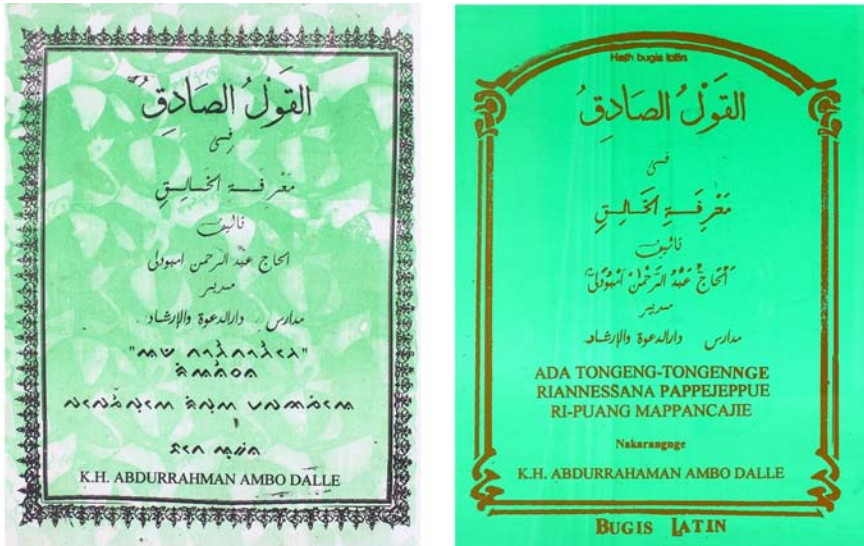 القَوْلُ الصَادِقُ
فى
مَعْرِفَةِ الخَالِقِ
تاليف
الحاج عبد الرحمن امبودلى
مدير
مدارس دارالدعوة والإرشاد
K.H. ABDURRAHMAN AMBO DALLE
bugis latin
القَوْلُ الصَادِقُ
فى
مَعْرِفَةِ الخَالِقِ
تاليف
اَلْحَاجْ عَبْدُ الرَّحْمٰنْ اَمْبُودَلَّىْ
مدير
مدارس دارالدعوة والإرشاد
ADA TONGENG-TONGENNGE
RIANNESSANA PAPPEJEPPUE
RI-PUANG MAPPANCAJIE
Nakarangnge
K.H. ABDURRAHAMAN AMBO DALLE
BUGIS LATIN